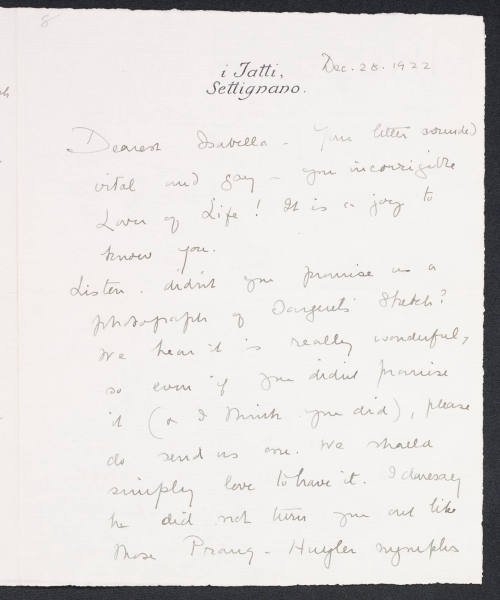 8
i Tatti,
Settignano.
Dec. 28. 1922
Dearest Isabella - Your letter sounded
vital and gay - you incorrigible
Lover of Life! It is a joy to
know you.
Listen. didn't you promise us a
photograph of Sargent's Sketch?
We hear it is really wonderful,
so even if you didn't promise
it (& I think you did), please
do send us one. We should
simply love to have it. I daresay
he did not turn you out like
those Prang - Huyler nymphs